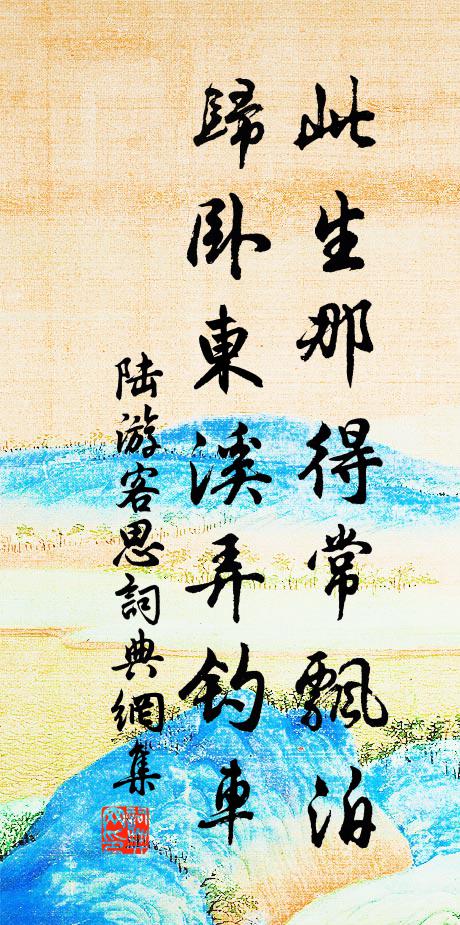 此生那得常飄泊
歸臥東溪弄釣車
陸游客思詞典網集